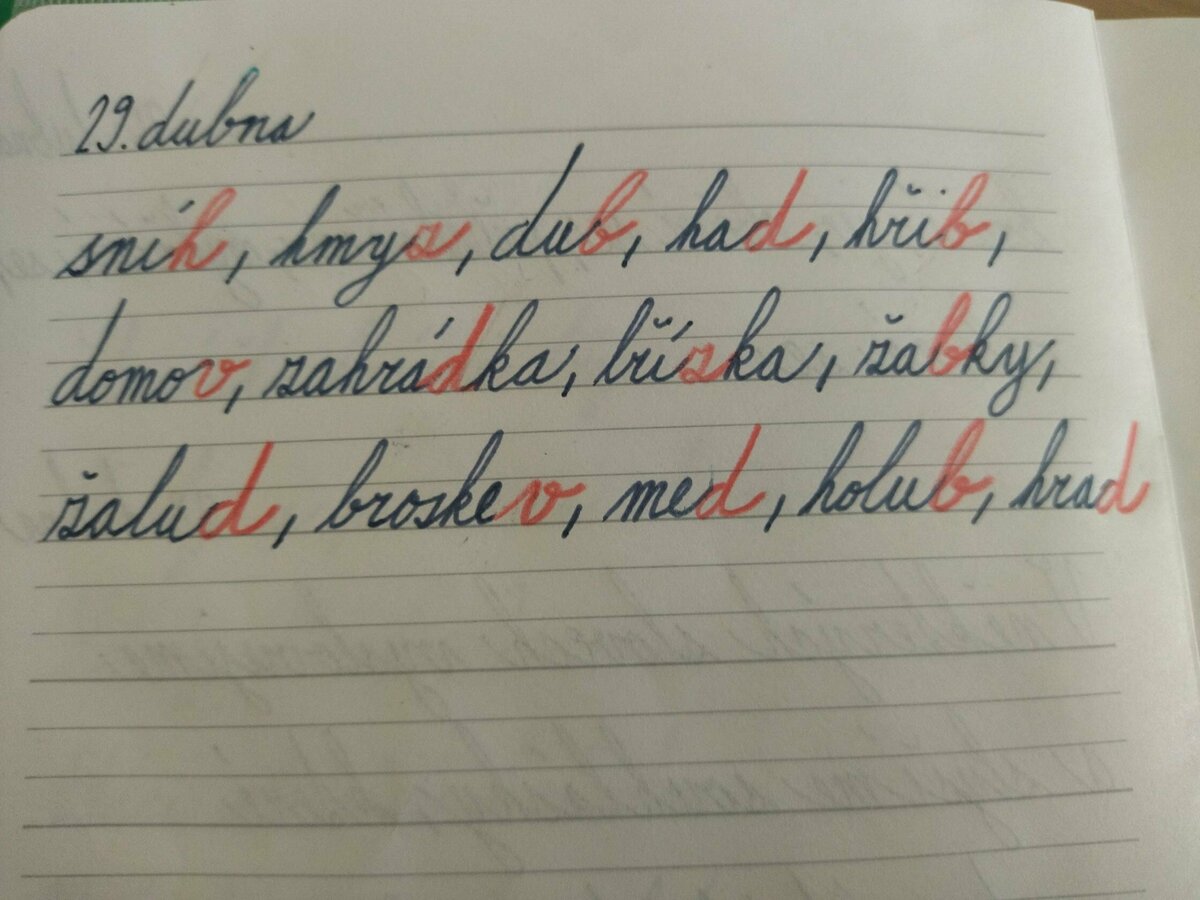 29. dubna
sníh, hmyz, dub, had, hřib,
domov, zahrádka, břízka, žabky,
žalud, broskev, med, holub, hrad